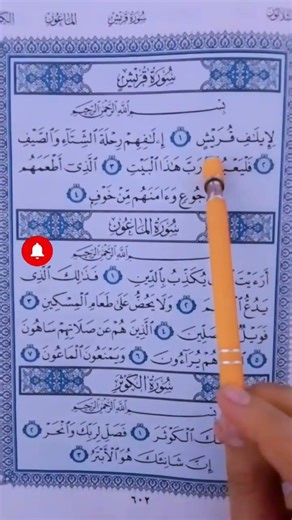 سُورَةُ قُرَيْشٍ المَاعُونَ الكَ
سُورَةُ قُرَيْشٍ
بِسْمِ اللَّهِ الرَّحْمَٰنِ الرَّحِيمِ
لِإِيلَٰفِ قُرَيْشٍ ١ إِۦلَٰفِهِمْ رِحْلَةَ الشِّتَآءِ وَالصَّيْفِ
٢ رَبَّ هَٰذَا الْبَيْتِ ٣ الَّذِىٓ أَطْعَمَهُم
جُوعٍ وَءَامَنَهُم مِّنْ خَوْفٍۭ ٤
سُورَةُ المَاعُونِ
بِسْمِ اللَّهِ الرَّحْمَٰنِ الرَّحِيمِ
أَرَءَيْتَ يُكَذِّبُ بِالدِّينِ ١ فَذَٰلِكَ الَّذِى
يَدُعُّ ٢ وَلَا يَحُضُّ عَلَىٰ طَعَامِ الْمِسْكِينِ ٣
فَوَيْلٌ ٤ الَّذِينَ هُمْ عَن صَلَاتِهِمْ سَاهُونَ
٥ هُمْ يُرَآءُونَ ٦ وَيَمْنَعُونَ الْمَاعُونَ ٧
سُورَةُ الكَوْثَرِ
بِسْمِ اللَّهِ الرَّحْمَٰنِ الرَّحِيمِ
الْكَوْثَرَ ١ فَصَلِّ لِرَبِّكَ وَانْحَرْ ٢
إِنَّ شَانِئَكَ هُوَ الْأَبْتَرُ ٣
٦٠٢